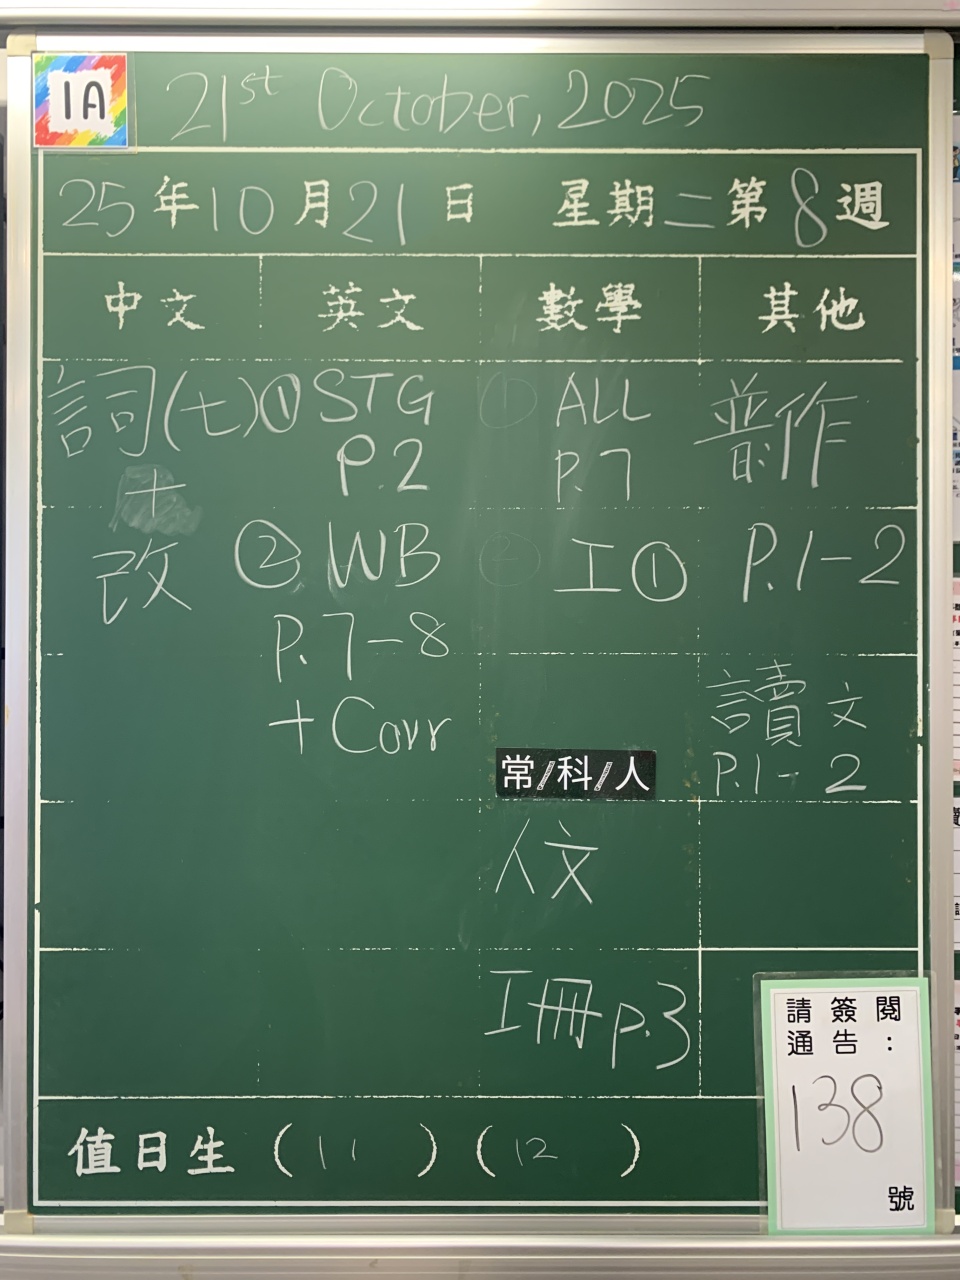 1A
21st October, 2025
25年10月21日 星期二第8週
中文 英文 數學 其他
詞(七)
+
改
① STG
P.2
② WB
P.7-8
+Corr
① ALL
P.7
② 工①
常/科/人
人文
工冊 p.3
普作
P.1-2
讀文
P.1-2
值日生 (11) (12)
請簽閱
通告:
138
號